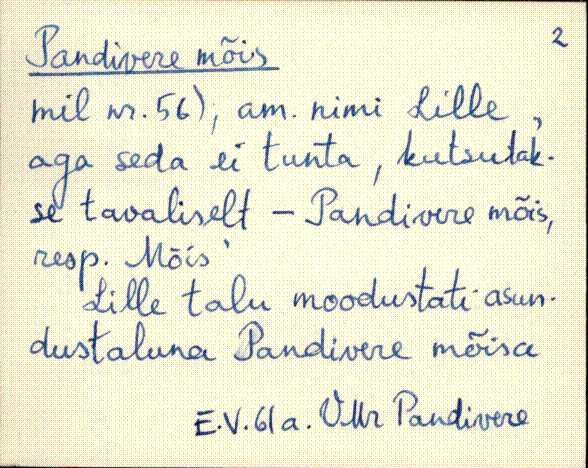 2
Pandivere mõis
mil nr. 56), am. nimi Lille,
aga seda ei tunta, kutsutak-
se tavaliselt – Pandivere mõis,
resp. Mõis'
Lille talu moodustati asun-
dustaluna Pandivere mõisa
E.V. 61 a. VMr Pandivere